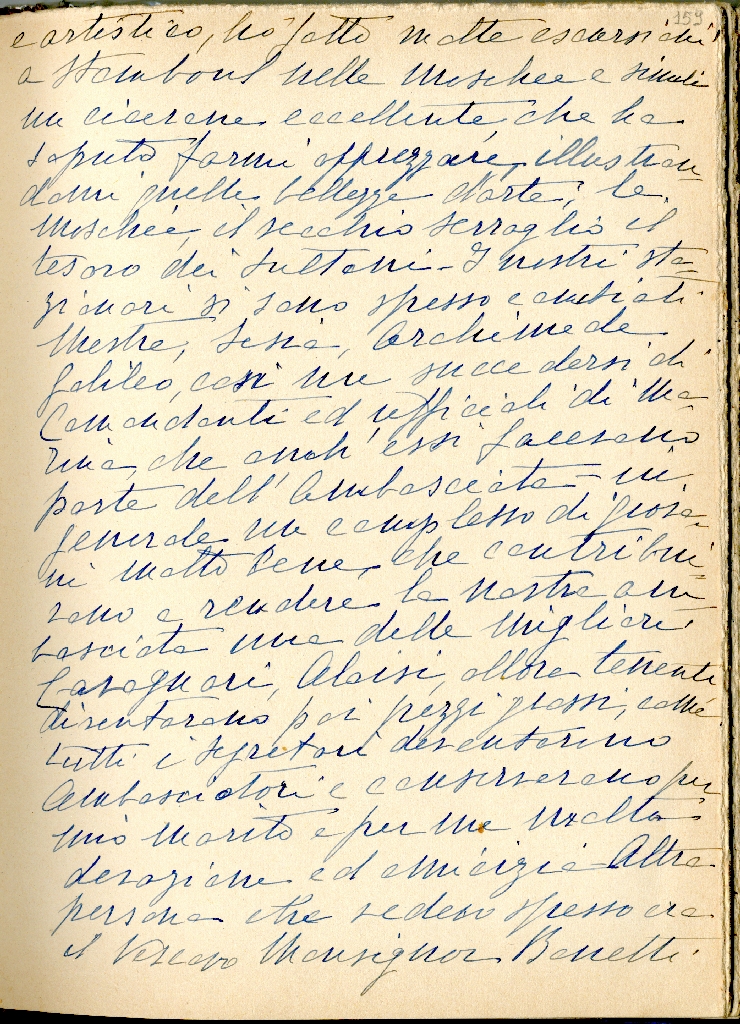 159
e artistico, ho fatto molte escursioni
a Stamboul nelle moschee e simili
un cicerone eccellente che ha
saputo farmi apprezzare, illustran=
domi quelle bellezze d'arte, le
moschee, il vecchio serraglio il
tesoro dei Sultani - I nostri sta=
zionari si sono spesso cambiati
Mestre, Sesia, Archimede
Galileo, così un succedersi di
Comandanti ed ufficiali di Ma=
rina che anch'essi facevano
parte dell'Ambasciata - in
generale un complesso di giova=
ni molto bene, che contribui=
vano a rendere la nostra am
basciata una delle migliori.
Cavagnari, Aloisi, allora tenenti
diventarono poi pezzi grossi, come
tutti i segretari diventarono
Ambasciatori e conservarono per
mio marito e per me molta
devozione ed amicizia - Altra
persona che vedevo spesso era
il Vescovo Monsignor Bonetti